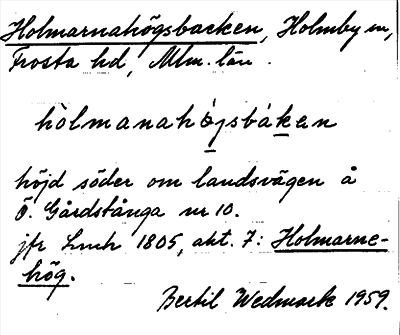 Holmarnahögsbacken, Holmby sn,
Frosta hd, Mlm. län.
hòlmanahǫ́jsbák̲an
höjd söder om landsvägen å
Ö. Gårdstånga nr 10.
jfr Lmh 1805, akt. 7: Holmarne-
hög.
Bertil Wedmark 1959.